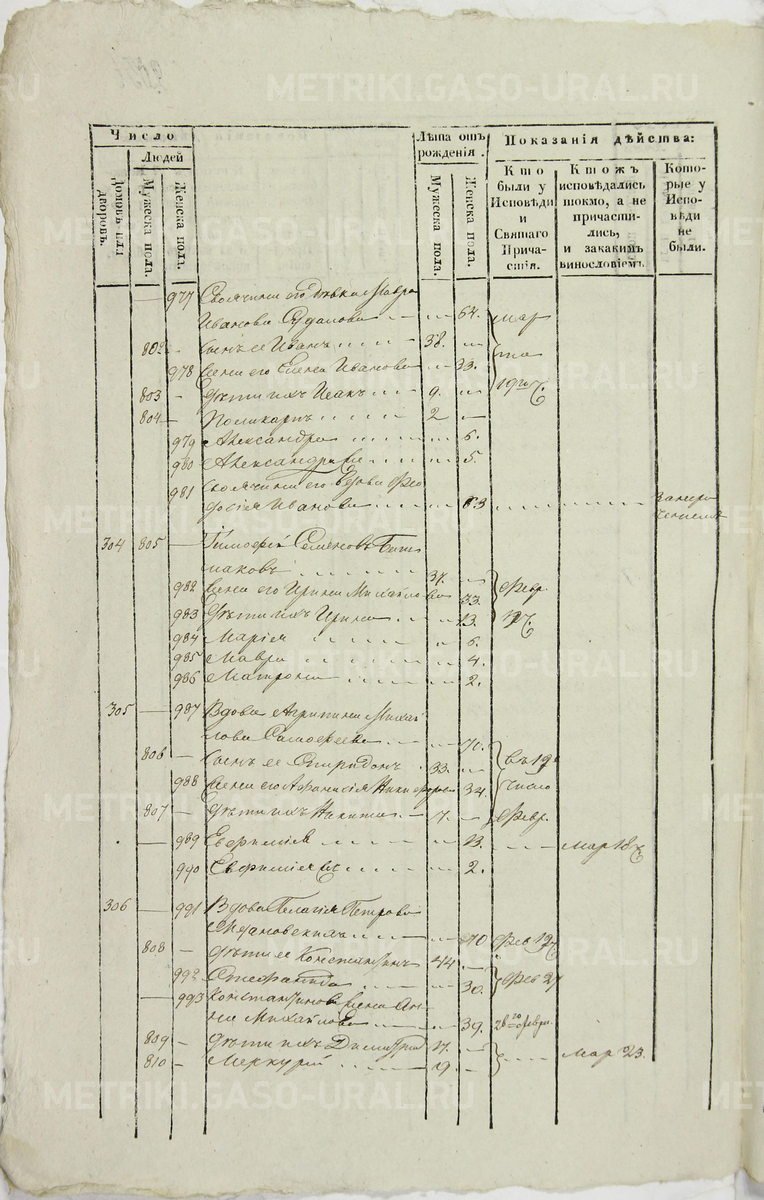 METRIKI.GASO-URAL.RU
Число
Людей
Домовъ или дворовъ.
Мужеска пола.
Женска пола.
Лѣта отъ рожденія.
Мужеска пола.
Женска пола.
Показанія дѣйства:
Кто были у Исповѣди и Святаго Причастія.
Ктожъ исповѣдались токмо, а не причастились, и закакимъ винословіемъ.
Которые у Исповѣди не были.
977 его Мавра
Иванова 64. мар
802 сынъ ее Иванъ 38.
978 Жена его Елена Иванова 33.
803 дѣти ихъ Исакъ 9.
804 Поликарпъ 2
979 Александра 6.
980 Александра 5.
981 его вдова Фео
досія Иванова 63
304 805 Тимофей Семеновъ
маковъ 37.
982 Жена его Ирина Михайлова 33. февр.
983 дѣти ихъ Ирина 13. 17
984 Марія 6.
985 Мавра 4.
986 Матрона 2.
305 987 Вдова Агрипина Михай
лова 70.
806 сынъ ее Спиридонъ 33. въ 19
988 Жена его Афанасія Никифорова 34. число
807 дѣти ихъ Никита 7. февр.
989 Евфимія 13. мар 18
990 Евфимія 2.
306 991 Вдова Пелагія Петрова
70 фев 17
808 дѣти ее Константинъ 44
992 Степанида 30. фев 27
993 Константинова жена Ан
на Михайлова 39. февр.
809 дѣти ихъ Димитрій 17. мар 23.
810 Меркурій 9.